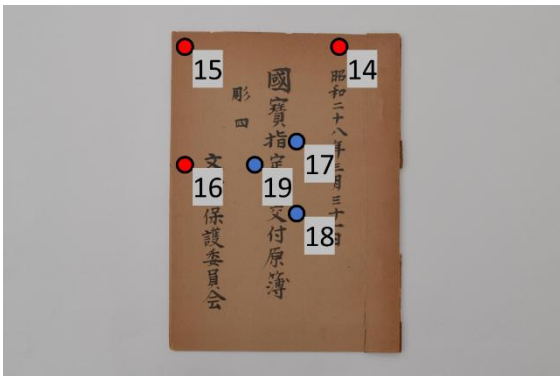 昭和二十八年三月三十一日
國寶指定交付原簿
彫四
文保護委員会
15
14
17
16
19
18